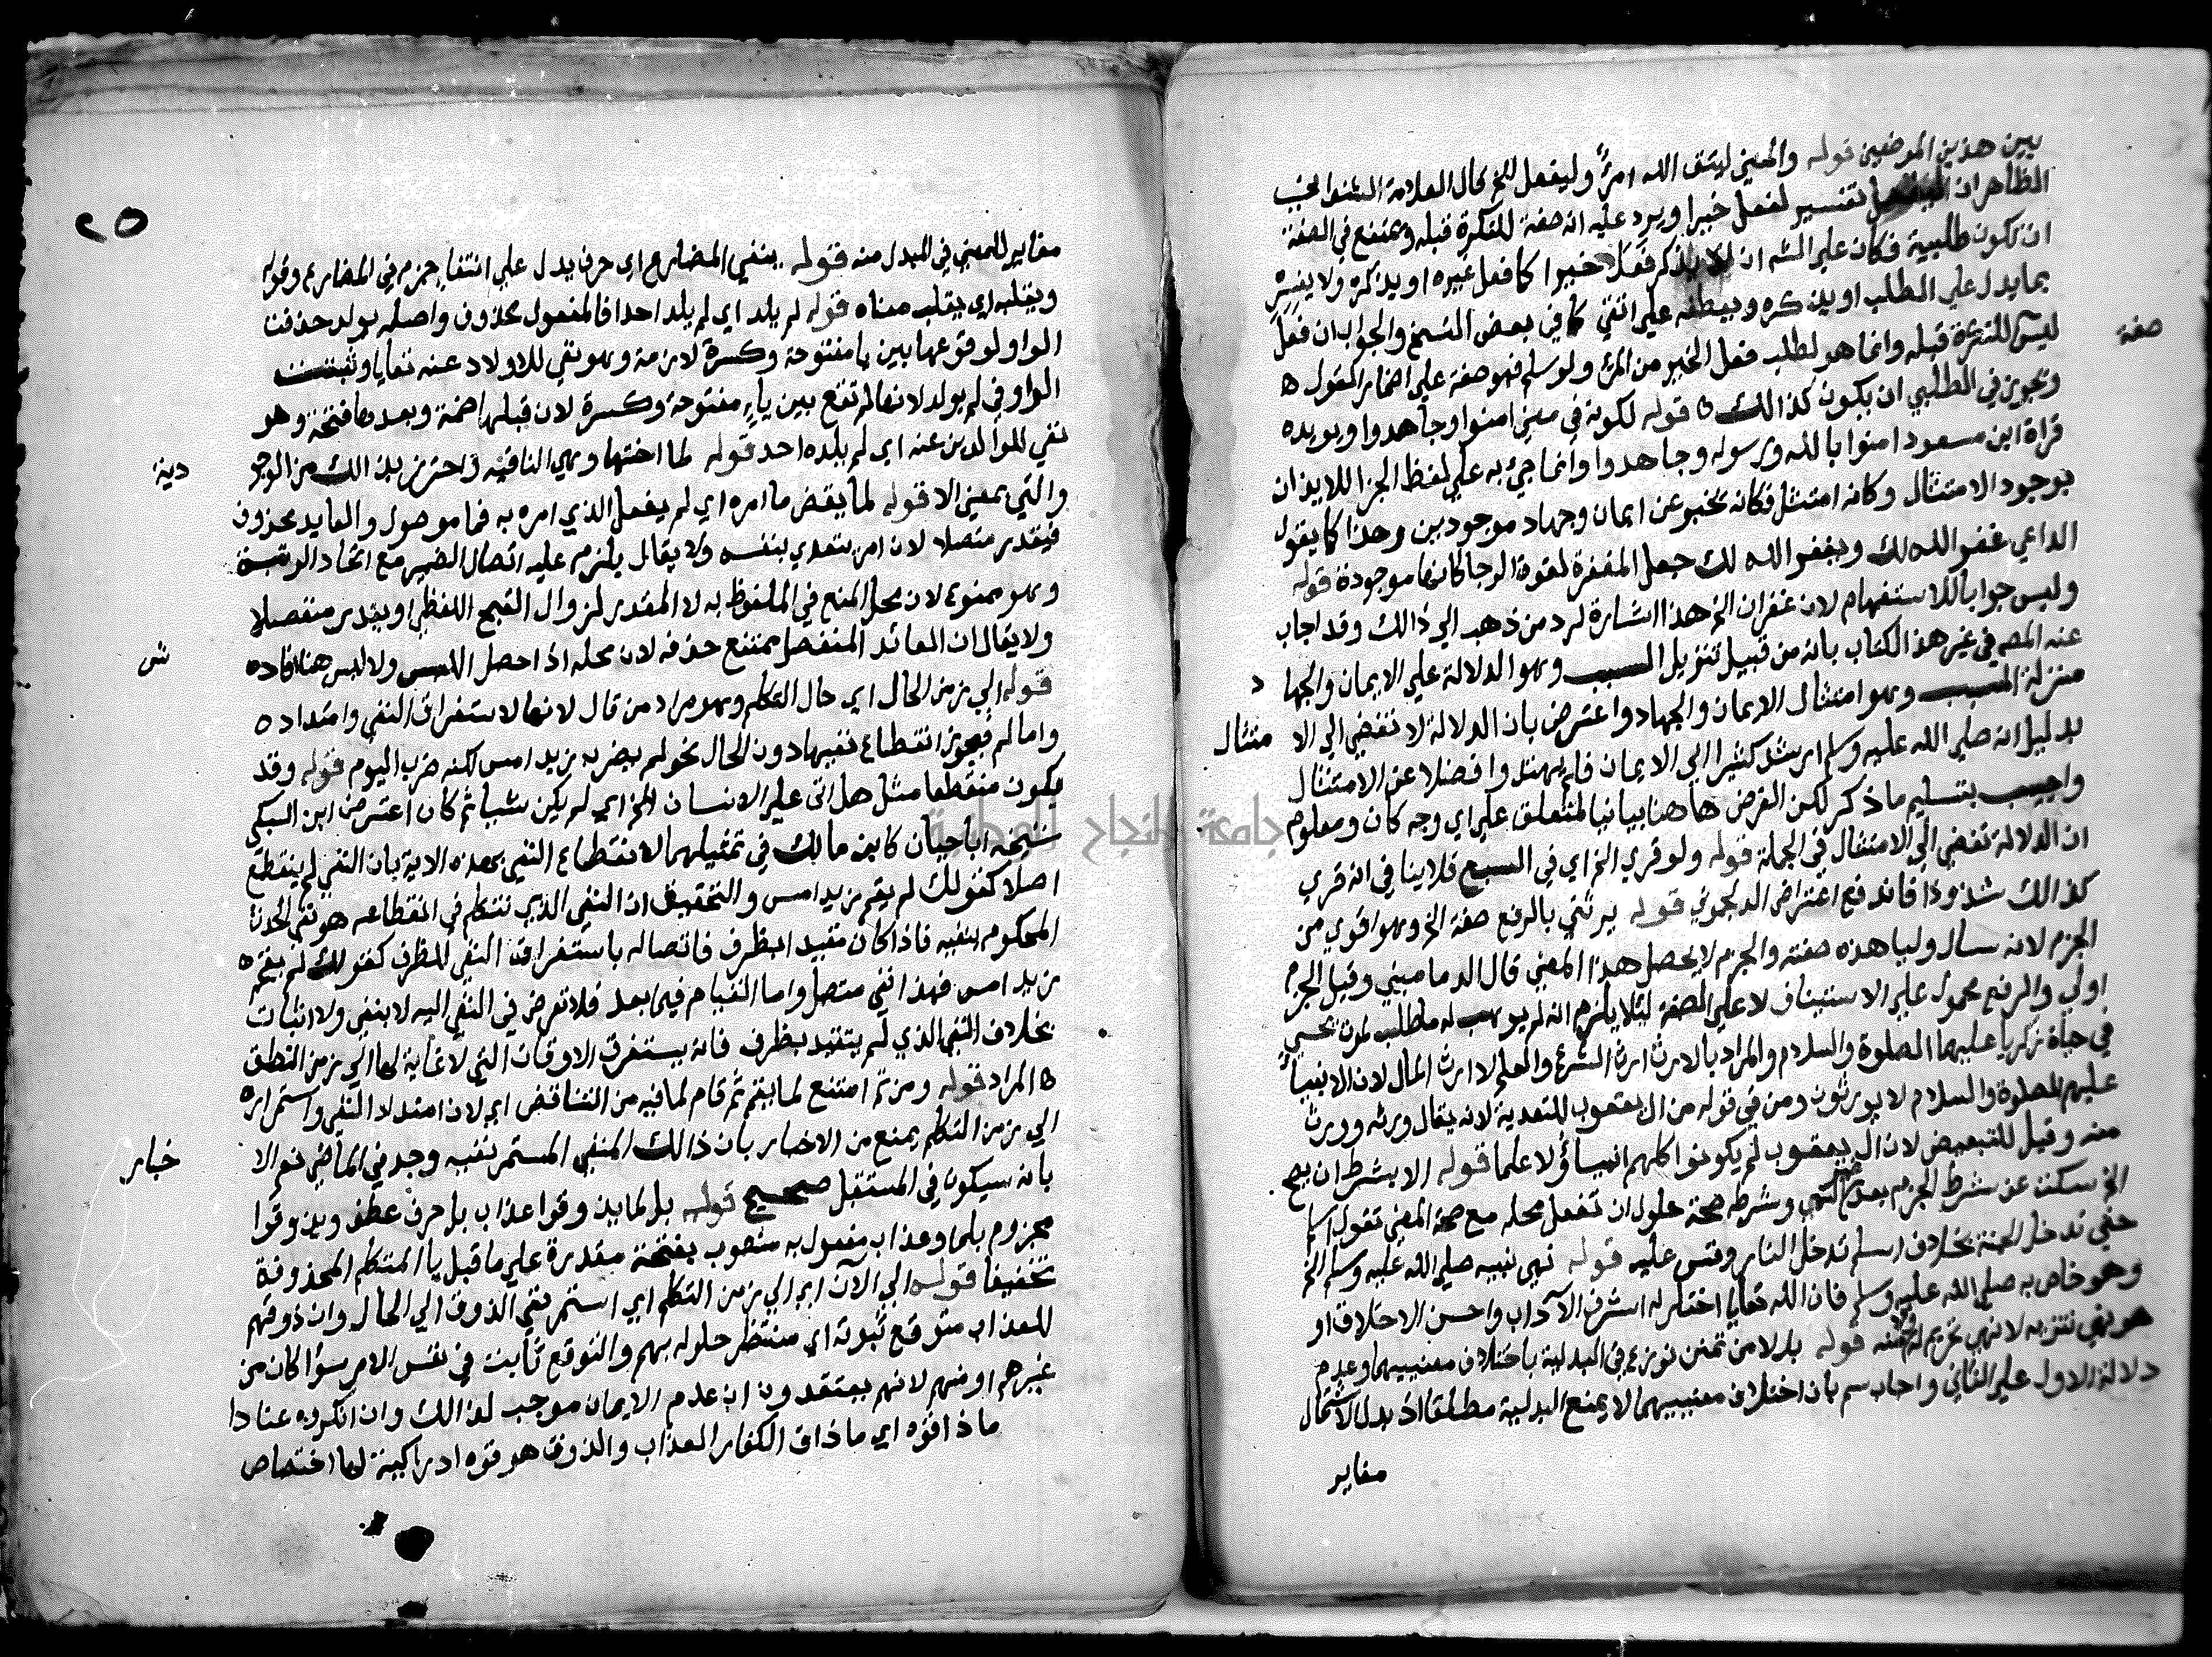 بين هذين الموضعين قوله والمعني ليتق الله امرؤ وليفعل الخ قال العلامة الشنواني
الظاهر ان تفسير لفعل خيرا ويرد عليه انه صفة للنكرة قبله ويمتنع في الصفة
ان تكون طلبية فكان علي الشم ان لا يذكر فعل خيرا كما فعل غيره او يذكره ولا يفسره
بما يدل علي الطلب او يذكره ويعطفه علي اتقي كما في بعض النسخ والجواب ان فعل
ليس للنكرة قبله وانما هو لطلب فعل الخير من المرء ولو سلم فهو صفة علي اضمار القول ه
صفة
وتجوين في الطلبي ان يكون كذالك ه قوله لكونه في معني امنوا وجاهدوا ويويده
قراة ابن مسعود امنوا بالله ورسوله وجاهدوا وانما جيء به علي لفظ الجزا للايذان
بوجود الامتثال وكانه امتثل فكانه يخبر عن ايمان وجهاد موجودين وهذا كما يقول
الداعي غفر الله لك ويغفر الله لك جعل المغفرة لقوة الرجا كانها موجودة قوله
وليس جوابا للاستفهام لان غفران الخ هذا اشارة لرد من ذهب الي ذالك وقد اجاب
عنه المصم في غير هذا الكتاب بانه من قبيل تنزيل السبب وهو الدلالة علي الايمان والجها د
منزلة المسبب وهو امتثال الايمان والجهاد واعترض بان الدلالة لا تفضي الي الا متثال
بدليل انه صلي الله عليه وسلم ارشد كثيرا الي الايمان فلم يهتدوا فضلا عن الامتثال
واجيب بتسليم ما ذكر لكن الغرض هاهنا بيان المتعلق علي اي وجه كان ومعلوم
ان الدلالة تفضي الي الامتثال في الجملة قوله ولو قري الخ اي في السبع فلا ينافي انه قري
كذالك شذوذا فاندفع اعتراض الدلجوني قوله يرثني بالرفع صفة الخ وهو اقوي من
الجزم لانه سال وليا هذه صفته والجزم لا يحصل هذا المعني قال الدماميني وقيل الجزم
اولي والرفع محمول علي الاستيناف لا علي الصفة لئلا يلزم انه لم يوهب له ما طلب لموت يحيي
في حياة زكريا عليهما الصلوة والسلام والمراد بالارث ارث الشرع والعلم لا ارث المال لان الانبيا
عليهم الصلوة والسلام لا يورثون ومن في قوله من ال يعقوب للتعدية لانه يقال ورثه وورث
منه وقيل للتبعيض لان ال يعقوب لم يكونوا كلهم انبيا ولا علما قوله الا بشرط ان يصح
الخ سكت عن شرط الجزم بعد وشرطه صحة حلول ان تفعل محله مع صحة المعني تقول اسلم
حتي تدخل الجنة بخلاف اسلم تدخل النار وقس عليه قوله نهي نبيه صلي الله عليه وسلم الخ
وهو خاص به صلي الله عليه وسلم فان الله تعالي اختار له اشرف الآداب واحسن الاخلاق او
هو نهي تنزيه لا نهي تحريم له قوله بدلا من تمنن نوزع في البدلية باختلاف معنييهما وعدم
دلالة الاول علي الثاني واجاب سم بان اختلاف معنييهما لا يمنع البدلية مطلقا اذ بدل الاشتمال
مغاير
٢٥
مغاير للمعني في المبدل منه قوله ينفي المضارع اي حرف يدل علي انتفا جزم في المضارع وقوله
ويقلبه اي يقلب معناه قوله لم يلد اي لم يلد احدا فالمفعول محذوف واصله يولد حذفت
الواو لوقوعها بين يا مفتوحة وكسرة لازمة وهو نفي للاولاد عنه تعالي وثبتت
الواو في لم يولد لانها لم تقع بين ياء مفتوحة وكسرة لان قبلها ضمة وبعدها فتحة وهو
نفي للوالدين عنه اي لم يلده احد قوله لما اختها وهي النافية واحترز بذالك من الوجو
دية
والتي بمعني الا قوله لما يقض ما امره اي لم يفعل الذي امره به فما موصول والعايد محذوف
فيقدر متصلا لان امر يتعدي بنفسه ولا يقال يلزم عليه اتصال الضمير مع اتحاد الرتبة
وهو ممنوع لان محل المنع في الملفوظ به لا المقدر لزوال القبح اللفظي او يقدر منفصلا
ولا يقال ان العائد المنفصل يمتنع حذفه لان محله اذا حصل اللبس ولا لبس هنا افاده
ش
قوله الي زمن الحال اي حال التكلم وهو مراد من قال لانها لاستغراق النفي وامتداده
واما لم فيجوز انقطاع نفيها دون الحال نحو لم يضرب زيد امس لكنه ضرب اليوم قوله وقد
يكون منقطعا مثل هل اتي علي الانسان الخ اي لم يكن شيا ثم كان اعترض ابن السبكي
شيخه اباحيان كابن مالك في تمثيلهما لانقطاع النفي بهذه الاية بان النفي لم ينقطع
اصلا كقولك لم يقم زيد امس والتحقيق ان النفي الذي نتكلم في انقطاعه هو نفي الحدث
المحكوم بنفيه فاذا كان مقيد ابظرف فاتصاله باستغراق النفي للظرف كقولك لم يقم ه
زيد امس فهذا نفي متصل واما القيام فيما بعد فلا تعرض في النفي اليه لا بنفي ولا اثبات
بخلاف النفي الذي لم يتقيد بظرف فانه يستغرق الاوقات التي لا غاية لها الي زمن النطق
ه المراد قوله ومن ثم امتنع لما يقم ثم قام لما فيه من التناقض اي لان امتداد النفي واستمراره
الي زمن التكلم يمنع من الاخبار بان ذالك المنفي المستمر نفيه وجد في الماضي نعم الا
خبار
بانه سيكون في المستقبل صحيح قوله بل لما يذوقوا عذاب بل حرف عطف ويذوقوا
مجزوم بلما وعذاب مفعول به منصوب بفتحة مقدرة علي ما قبل يا المتكلم المحذوفة
تخفيفا قوله الي الآن اي الي زمن التكلم اي استمر نفي الذوق الي الحال وان ذوقهم
للعذاب متوقع ثبوته اي منتظر حلوله بهم والتوقع ثابت في نفس الامر سؤا كان من
غيرهم او منهم لانهم يعتقدون ان عدم الايمان موجب لذالك وان انكروه عنادا
ما ذاقوه اي ما ذاق الكفار العذاب والذوق هو قوه ادراكية لها اختصاص
جامعة النجاح الوطنية